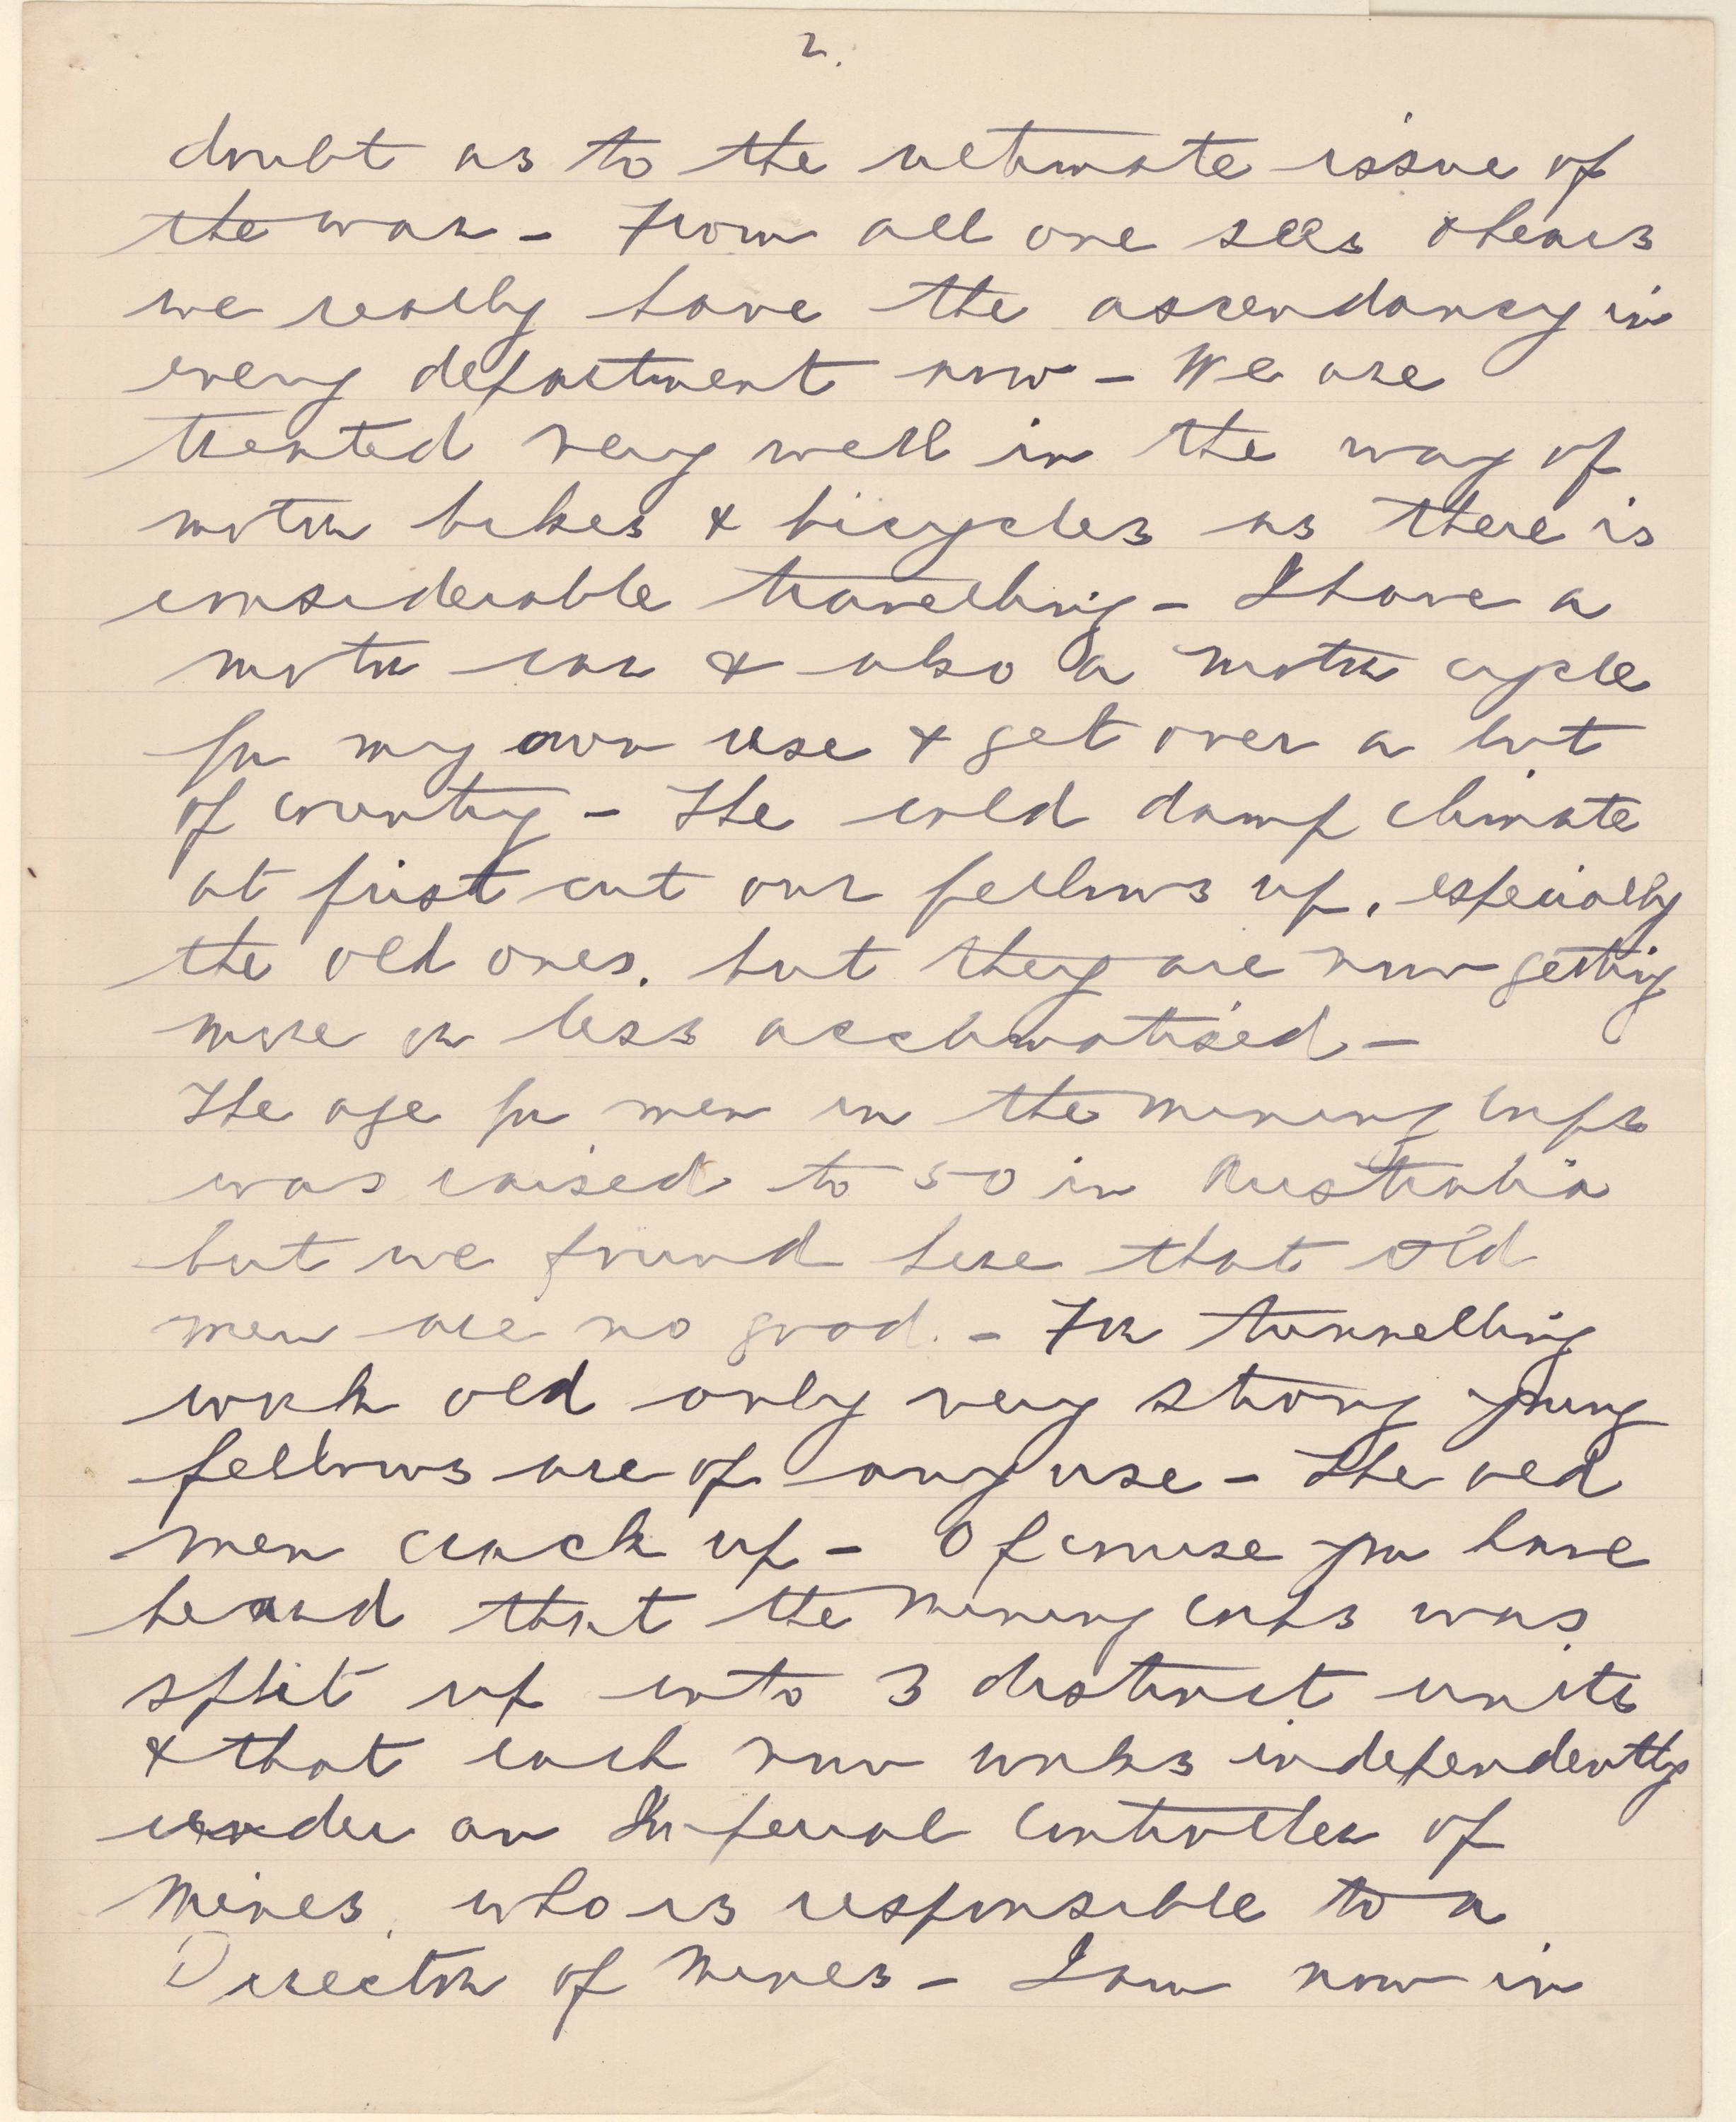 2.
doubt as to the ultimate issue of
the war - From all one sees & hears
we really have the ascendancy in
every department now - We are
treated very well in the way of
motor bikes & bicycles as there is
considerable travelling - I have a
motor car & also a motor cycle
for my own use & get over a lot
of country - The cold damp climate
at first cut our fellows up, especially
the old ones, but they are now getting
more or less acclimatised -
The age for men in the Mining Corps
was raised to 50 in Australia
but we found here that old
men are no good. - For tunnelling
work old only very strong young
fellows are of any use - The old
men crack up - Of course you have
heard that the Mining Corps was
split up into 3 distinct units
& that each now works independently
under an Imperial Controller of
Mines, who is responsible to a
Director of Mines - I am now in